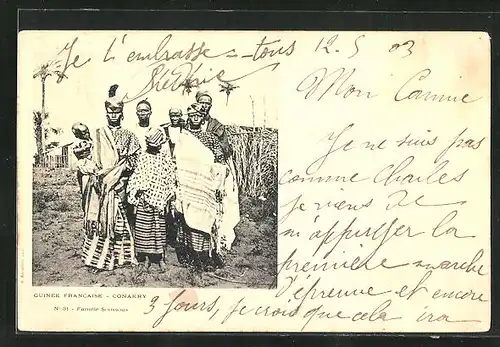 Je t'embrasse = tous 12-5 03
Mon Camie
Je ne suis pas
comme Charles
je viens de
m'appuyer la
première marche
d'épreuve et encore
GUINÉE FRANÇAISE - CONAKRY
N° 31 - Famille Soussous
3 jours, je crois que cela ira